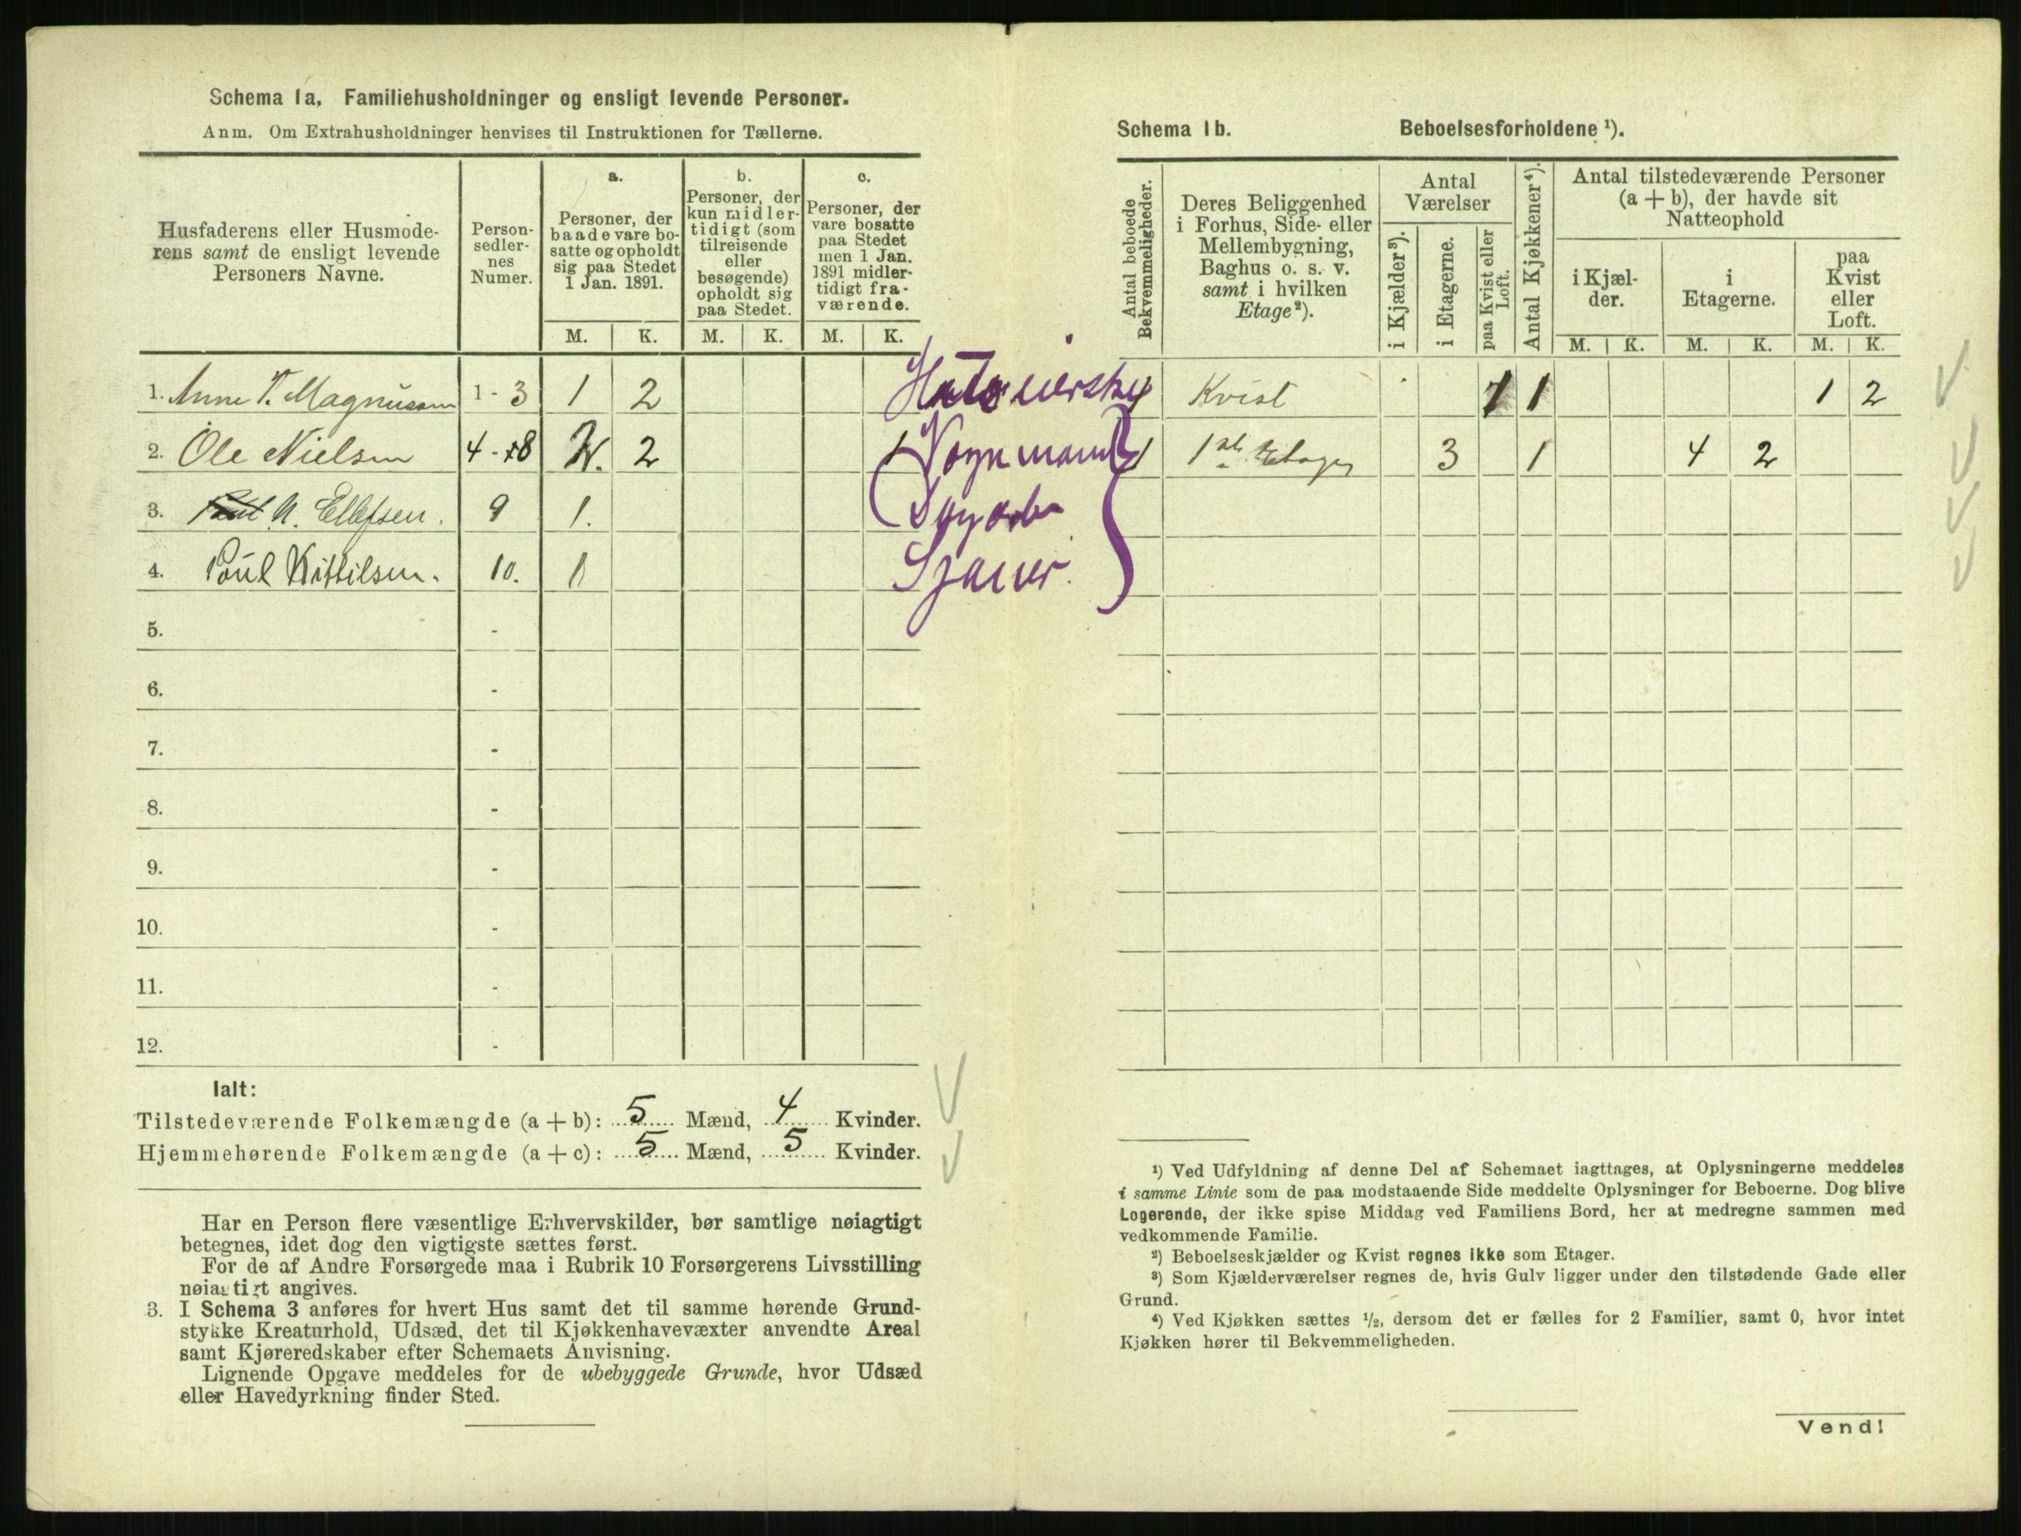 Schema 1a. Familiehusholdninger og ensligt levende Personer.
Anm. Om Extrahusholdninger henvises til Instruktionen for Tællerne.
Husfaderens eller Husmode-
rens samt de ensligt levende
Personers Navne.
Person-
sedler-
nes
Numer.
a.
Personer, der
baade vare bo-
satte og opholdt
sig paa Stedet
1 Jan. 1891.
b.
Personer, der
kun midler-
tidigt (som
tilreisende
eller
besøgende)
opholdt sig
paa Stedet.
c.
Personer, der
vare bosatte
paa Stedet
men 1 Jan.
1891 midler-
tidigt fra-
værende.
M. K. M. K. M. K.
1. Anne T. Magnussen 1 - 3 1 2
2. Ole Nielsen 4 - 8 2
3. N. Ellefsen. 9 1.
4. Poul Kittilsen. 10. 1
5. -
6. -
7. -
8. -
9. -
10. -
11. -
12. -
Vognmand
Sjauer.
Ialt:
Tilstedeværende Folkemængde (a + b): 5 Mænd, 4 Kvinder.
Hjemmehørende Folkemængde (a + c): 5 Mænd, 5 Kvinder.
Har en Person flere væsentlige Erhvervskilder, bør samtlige nøiagtigt
betegnes, idet dog den vigtigste sættes først.
For de af Andre Forsørgede maa i Rubrik 10 Forsørgerens Livsstilling
nøiagtigt angives.
3. I Schema 3 anføres for hvert Hus samt det til samme hørende Grund-
stykke Kreaturhold, Udsæd, det til Kjøkkenhavevæxter anvendte Areal
samt Kjøreredskaber efter Schemaets Anvisning.
Lignende Opgave meddeles for de ubebyggede Grunde, hvor Udsæd
eller Havedyrkning finder Sted.
Schema 1b. Beboelsesforholdene ¹).
Antal beboede
Bekvemmeligheder.
Deres Beliggenhed
i Forhus, Side- eller
Mellembygning,
Baghus o. s. v.
samt i hvilken
Etage²).
Antal
Værelser
i Kjælder³).
i Etagerne.
paa Kvist eller
Loft.
Antal Kjøkkener⁴).
Antal tilstedeværende Personer
(a + b), der havde sit
Natteophold
i Kjæl-
der.
i
Etagerne.
paa
Kvist
eller
Loft.
M. K. M. K. M. K.
1 Kvist 1 1 1 2
1 1ste Etage 3 1 4 2
¹) Ved Udfyldning af denne Del af Schemaet iagttages, at Oplysningerne meddeles
i samme Linie som de paa modstaaende Side meddelte Oplysninger for Beboerne. Dog blive
Logerende, der ikke spise Middag ved Familiens Bord, her at medregne sammen med
vedkommende Familie.
²) Beboelseskjælder og Kvist regnes ikke som Etager.
³) Som Kjælderværelser regnes de, hvis Gulv ligger under den tilstødende Gade eller
Grund.
⁴) Ved Kjøkken sættes ½, dersom det er fælles for 2 Familier, samt 0, hvor intet
Kjøkken hører til Bekvemmeligheden.
Vend!